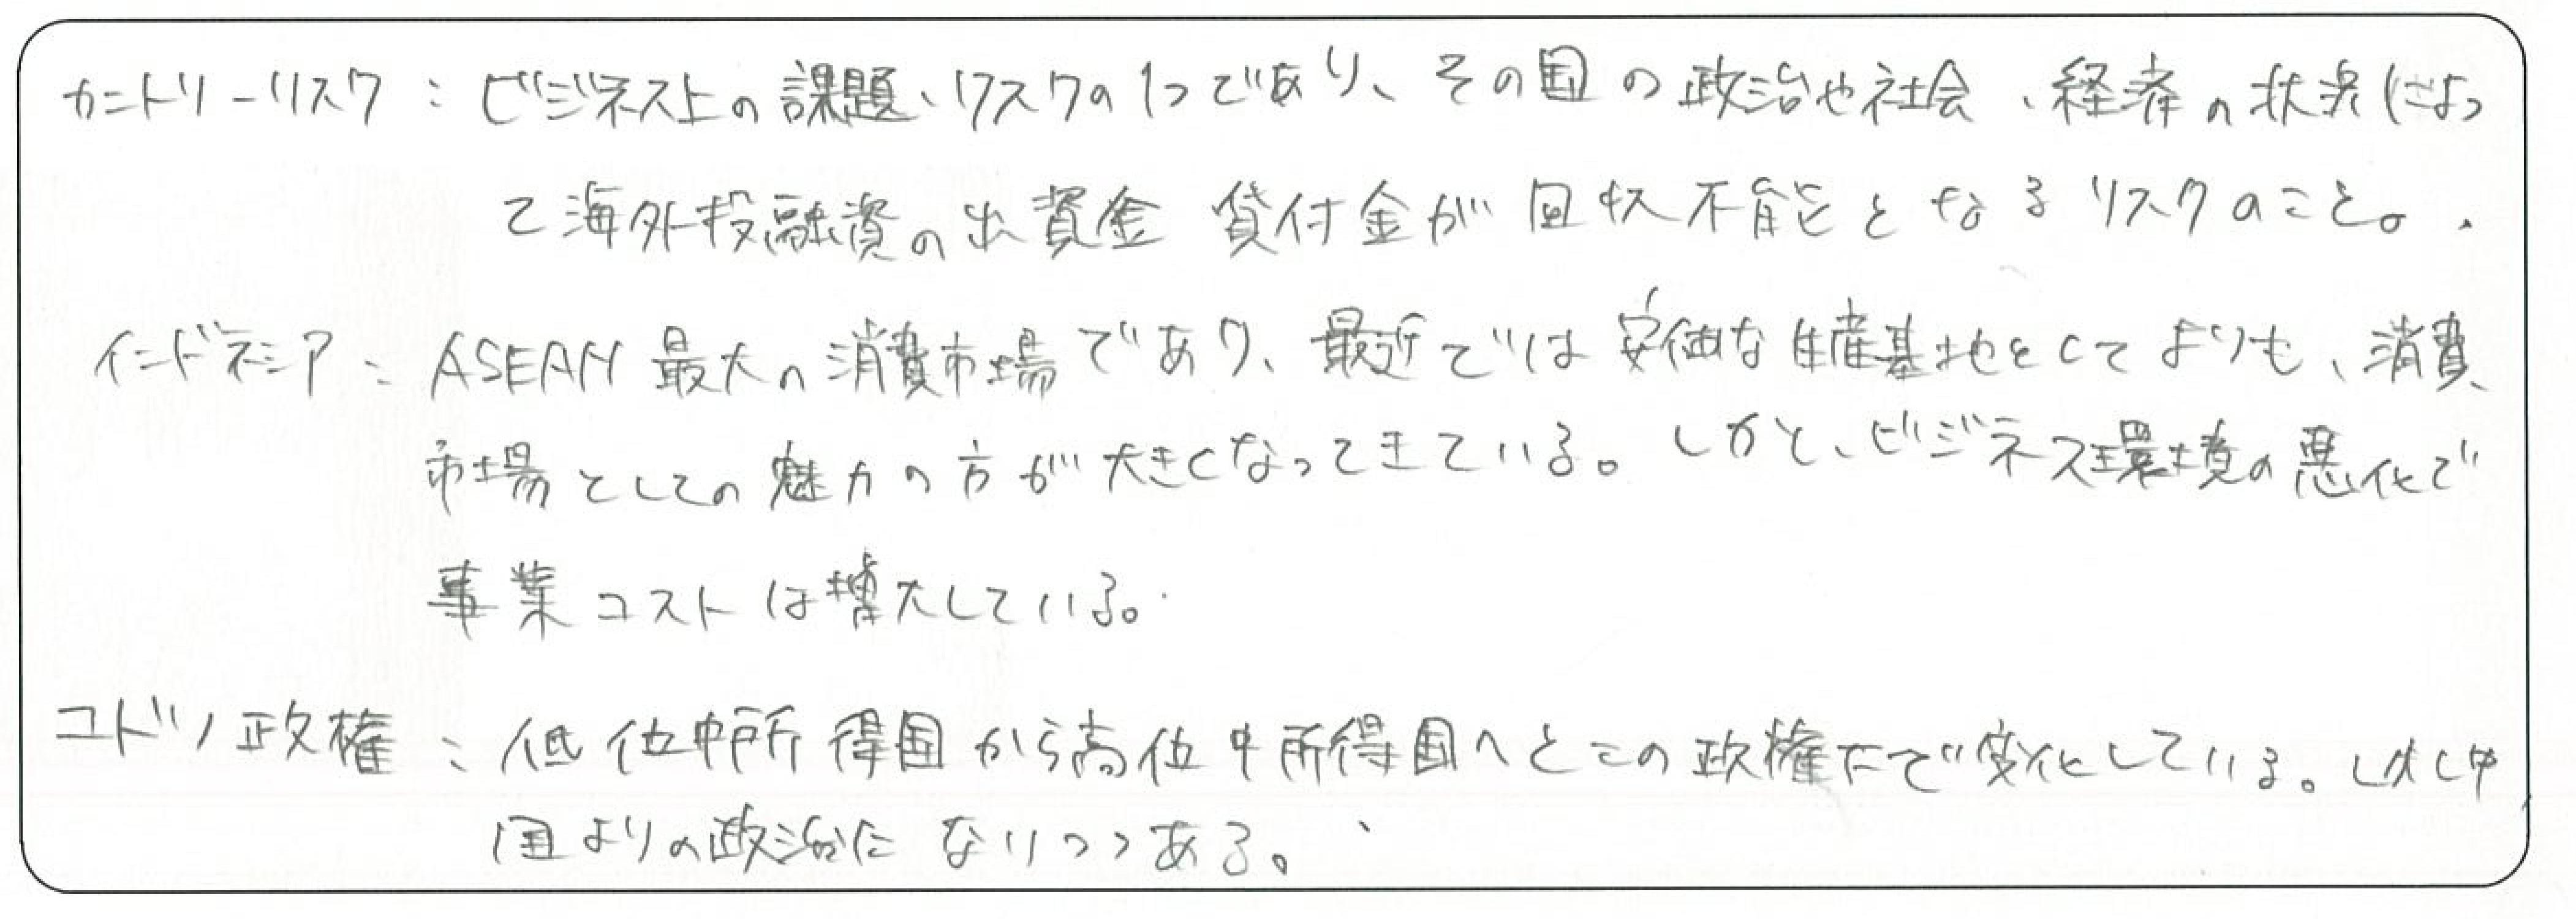 カントリーリスク：ビジネス上の課題、リスクの1つであり、その国の政治や社会、経済の状況によっ
て海外投融資の出資金 貸付金が回収不能となるリスクのこと。
インドネシア：ASEAN最大の消費市場であり、最近では安価な生産基地をしてよりも、消費
市場としての魅力の方が大きくなってきている。しかし、ビジネス環境の悪化で
事業コストは増大している。
コドソ政権：低位中所得国から高位中所得国へとこの政権下で変化している。しかし中
国よりの政治になりつつある。